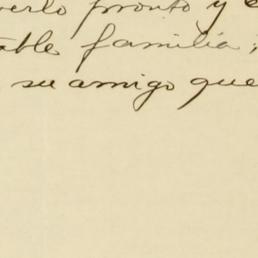 verlo pronto y e
able familia,
su amigo que